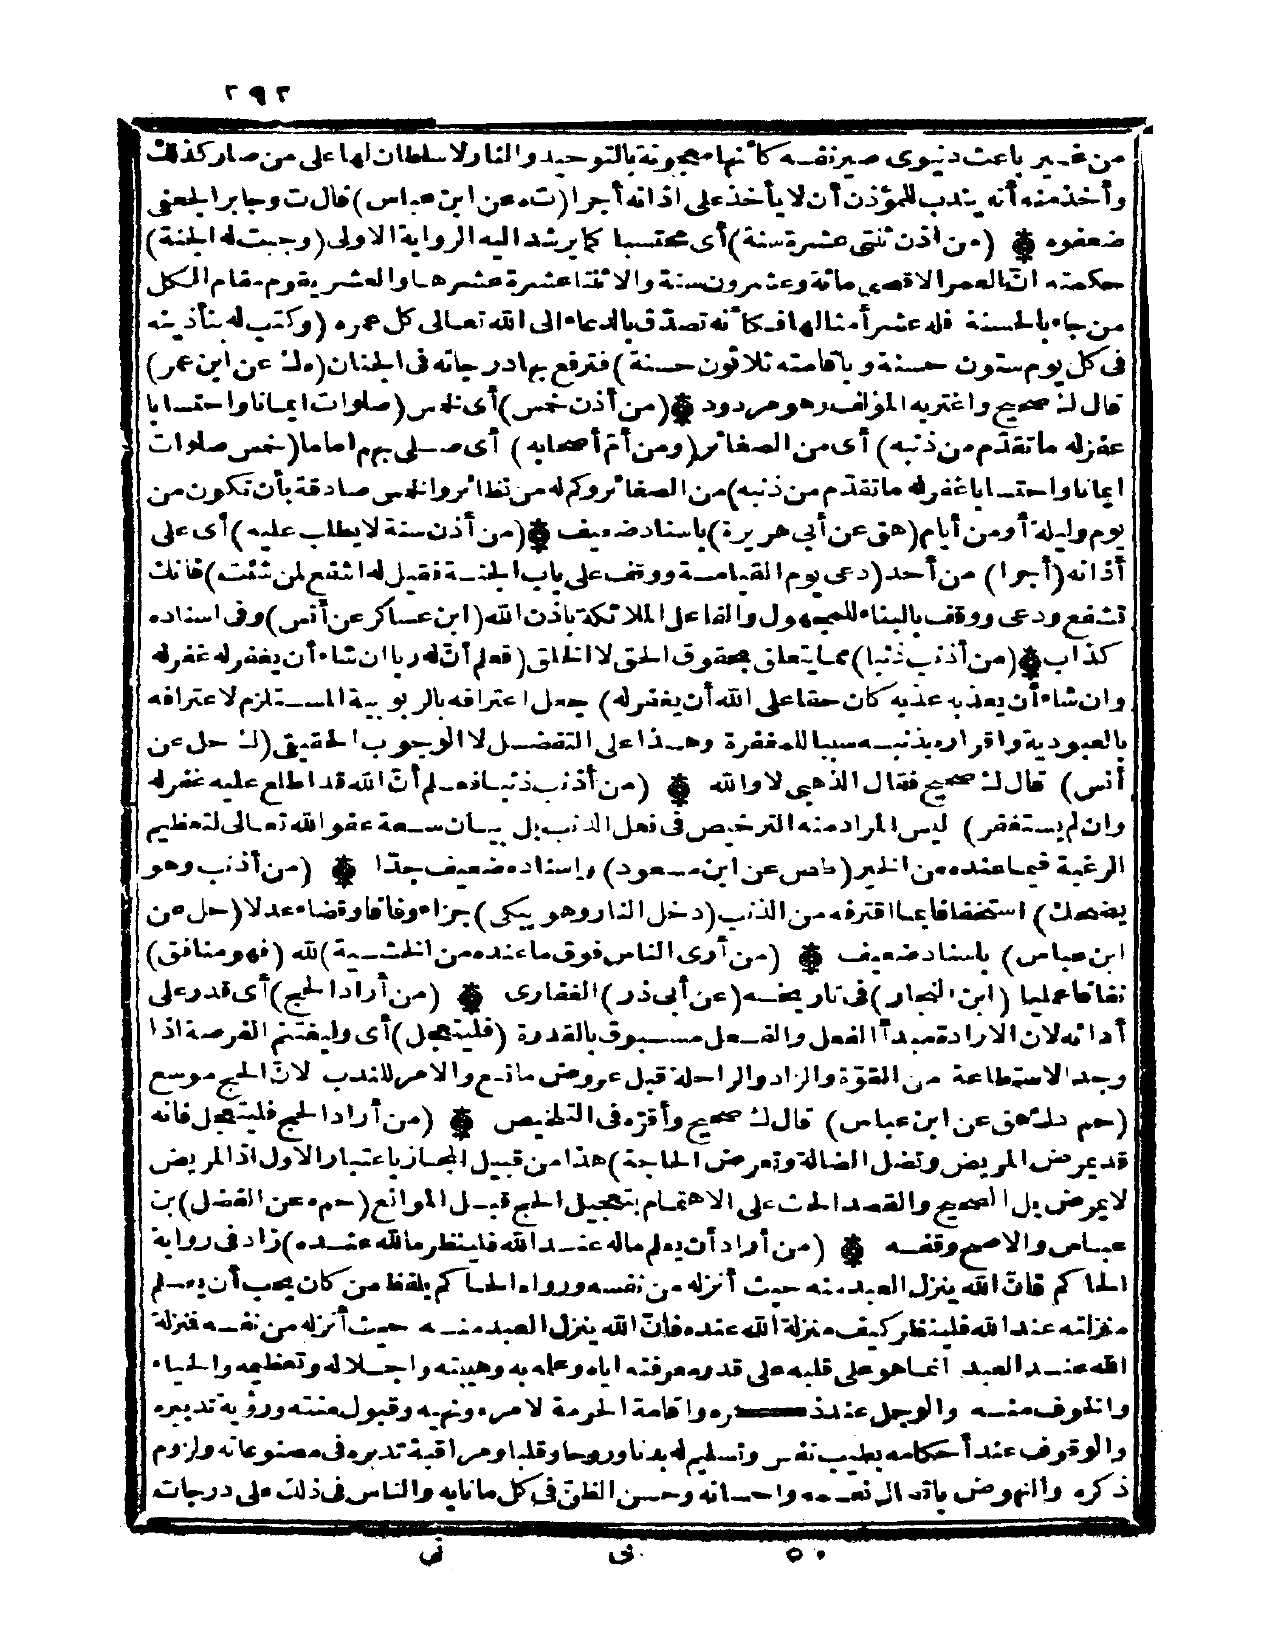 ٣٩٣
من غير باعث دنيوى صير نفسه كأنها معجونة بالتوحيد والنار لا سلطان لها على من صار كذلك
وأخذ منه أنه يندب للمؤذن أن لا يأخذ على اذانه أجرا (ت ه عن ابن عباس) قال ت وجابر الجعفى
ضعفوه ۞ (من اذن ثنتى عشرة سنة) أى محتسبا كما يرشد اليه الرواية الاولى (وجبت له الجنة)
حكمته انّ العمر الاقصى مائة وعشرون سنة والاثنتا عشرة عشرها والعشر يقوم مقام الكل
من جاء بالحسنة فله عشر أمثالها فكأنه تصدّق بالدعاء الى الله تعالى كل عمره (وكتب له بتأذينه
فى كل يوم ستون حسنة وباقامته ثلاثون حسنة) فترفع بها درجاته فى الجنان (ه ك عن ابن عمر)
قال ك صحيح واغتر به المؤلف وهو مردود ۞ (من أذن خمس) أى لخمس (صلوات ايمانا واحتسابا
غفر له ما تقدّم من ذنبه) أى من الصغائر (ومن أمّ أصحابه) أى صلى بهم اماما (خمس صلوات
ايمانا واحتسابا غفر له ما تقدّم من ذنبه) من الصغائر وكم له من نظائر والخمس صادقة بأن تكون من
يوم وليلة أو من أيام (هق عن أبى هريرة) باسناد ضعيف ۞ (من أذن سنة لا يطلب عليه) أى على
أذانه (أجرا) من أحد (دعى يوم القيامة ووقف على باب الجنة فقيل له اشفع لمن شئت) فانك
تشفع ودعى ووقف بالبناء للمجهول والفاعل الملائكة باذن الله (ابن عساكر عن أنس) وفى اسناده
كذاب ۞ (من أذنب ذنبا) مما يتعلق بحقوق الحق لا الخلق (فعلم أنّ له ربا ان شاء أن يغفر له غفر له
وان شاء أن يعذبه عذبه كان حقا على الله أن يغفر له) جعل اعترافه بالربوبية المستلزم لاعترافه
بالعبودية واقراره بذنبه سببا للمغفرة وهذا على التفضل لا الوجوب الحقيقى (ك حل عن
أنس) قال ك صحيح فقال الذهبى لا والله ۞ (من أذنب ذنبا فعلم أنّ الله قد اطلع عليه غفر له
وان لم يستغفر) ليس المراد منه الترخيص فى فعل الذنب بل بيان سعة عفو الله تعالى لتعظيم
الرغبة فيما عنده من الخير (طص عن ابن مسعود) واسناده ضعيف جدّا ۞ (من أذنب وهو
يضحك) استخفافا بما اقترفه من الذنب (دخل النار وهو يبكى) جزاء وفاقا وقضاء عدلا (حل عن
ابن عباس) باسناد ضعيف ۞ (من أرى الناس فوق ما عنده من الخشية) لله (فهو منافق)
نفاقا عمليا (ابن النجار) فى تاريخه (عن أبى ذر) الغفارى ۞ (من أراد الحج) أى قدر على
أدائه لان الارادة مبدأ الفعل والفعل مسبوق بالقدرة (فليتعجل) أى وليغتنم الفرصة اذا
وجد الاستطاعة من القوّة والزاد والراحلة قبل عروض مانع والامر للندب لانّ الحج موسع
(حم د ك هق عن ابن عباس) قال ك صحيح وأقرّه فى التلخيص ۞ (من أراد الحج فليتعجل فانه
قد يمرض المريض وتضل الضالة وتعرض الحاجة) هذا من قبيل المجاز باعتبار الاول اذ المريض
لا يمرض بل الصحيح والقصد الحث على الاهتمام بتعجيل الحج قبل الموانع (حم ه عن الفضل) بن
عباس والاصح وقفه ۞ (من أراد أن يعلم ماله عند الله فلينظر ما لله عنده) زاد فى رواية
الحاكم فانّ الله ينزل العبد منه حيث أنزله من نفسه ورواه الحاكم بلفظ من كان يحب أن يعلم
منزلته عند الله فلينظر كيف منزلة الله عنده فانّ الله ينزل العبد منه حيث أنزله من نفسه فمنزلة
الله عند العبد انما هو على قلبه على قدر معرفته اياه وعلمه به وهيبته واجلاله وتعظيمه والحياء
والخوف منه والوجل عند ذكره واقامة الحرمة لامره ونهيه وقبول منته ورؤية تدبيره
والوقوف عند أحكامه بطيب نفس وتسليم له بدنا وروحا وقلبا ومراقبة تدبيره فى مصنوعاته ولزوم
ذكره والنهوض باثقال نعمه واحسانه وحسن الظنّ فى كل ما نابه والناس فى ذلك على درجات
٥٠ ى نى